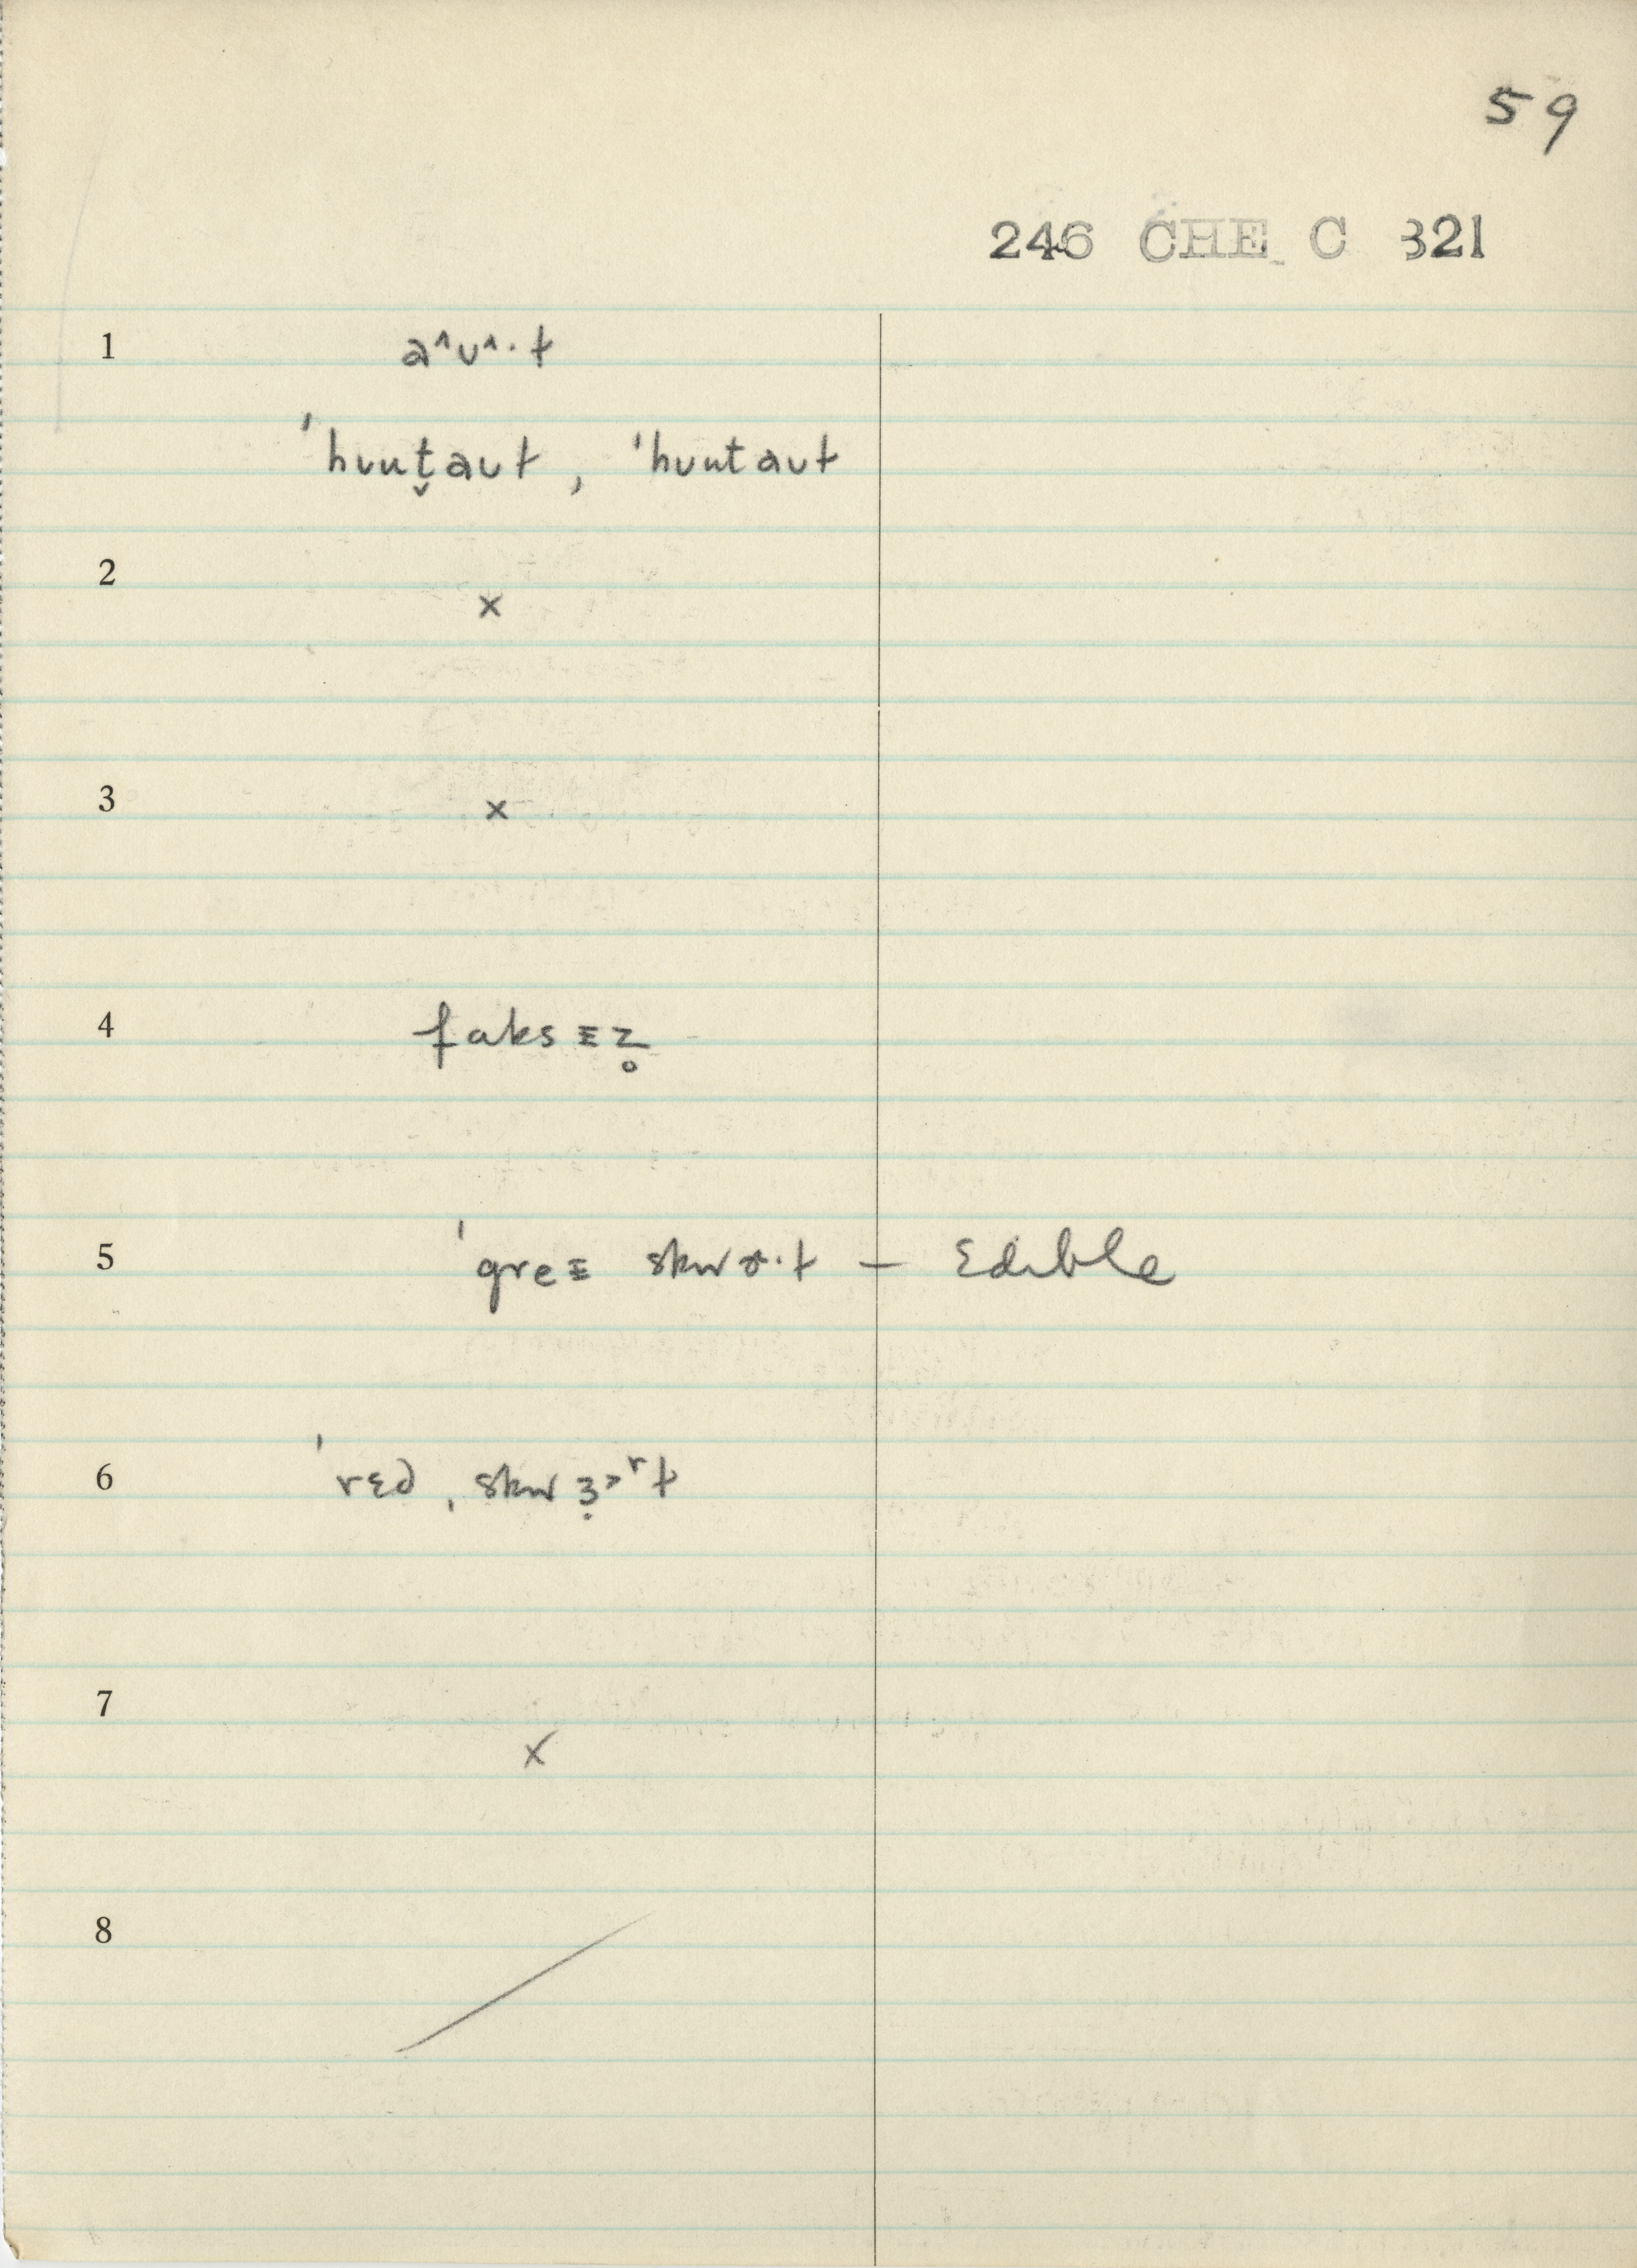 59
246 CHE C 321
1 a^ʊ^·t
ˈhuut̬aut, ˈhuutaut
2 ×
3 ×
4 faksɪz̥
5 ˈgreɪ skwɚ·t – Edible
6 ˈrɛd, skwɜ̣>ʳt
7 ×
8